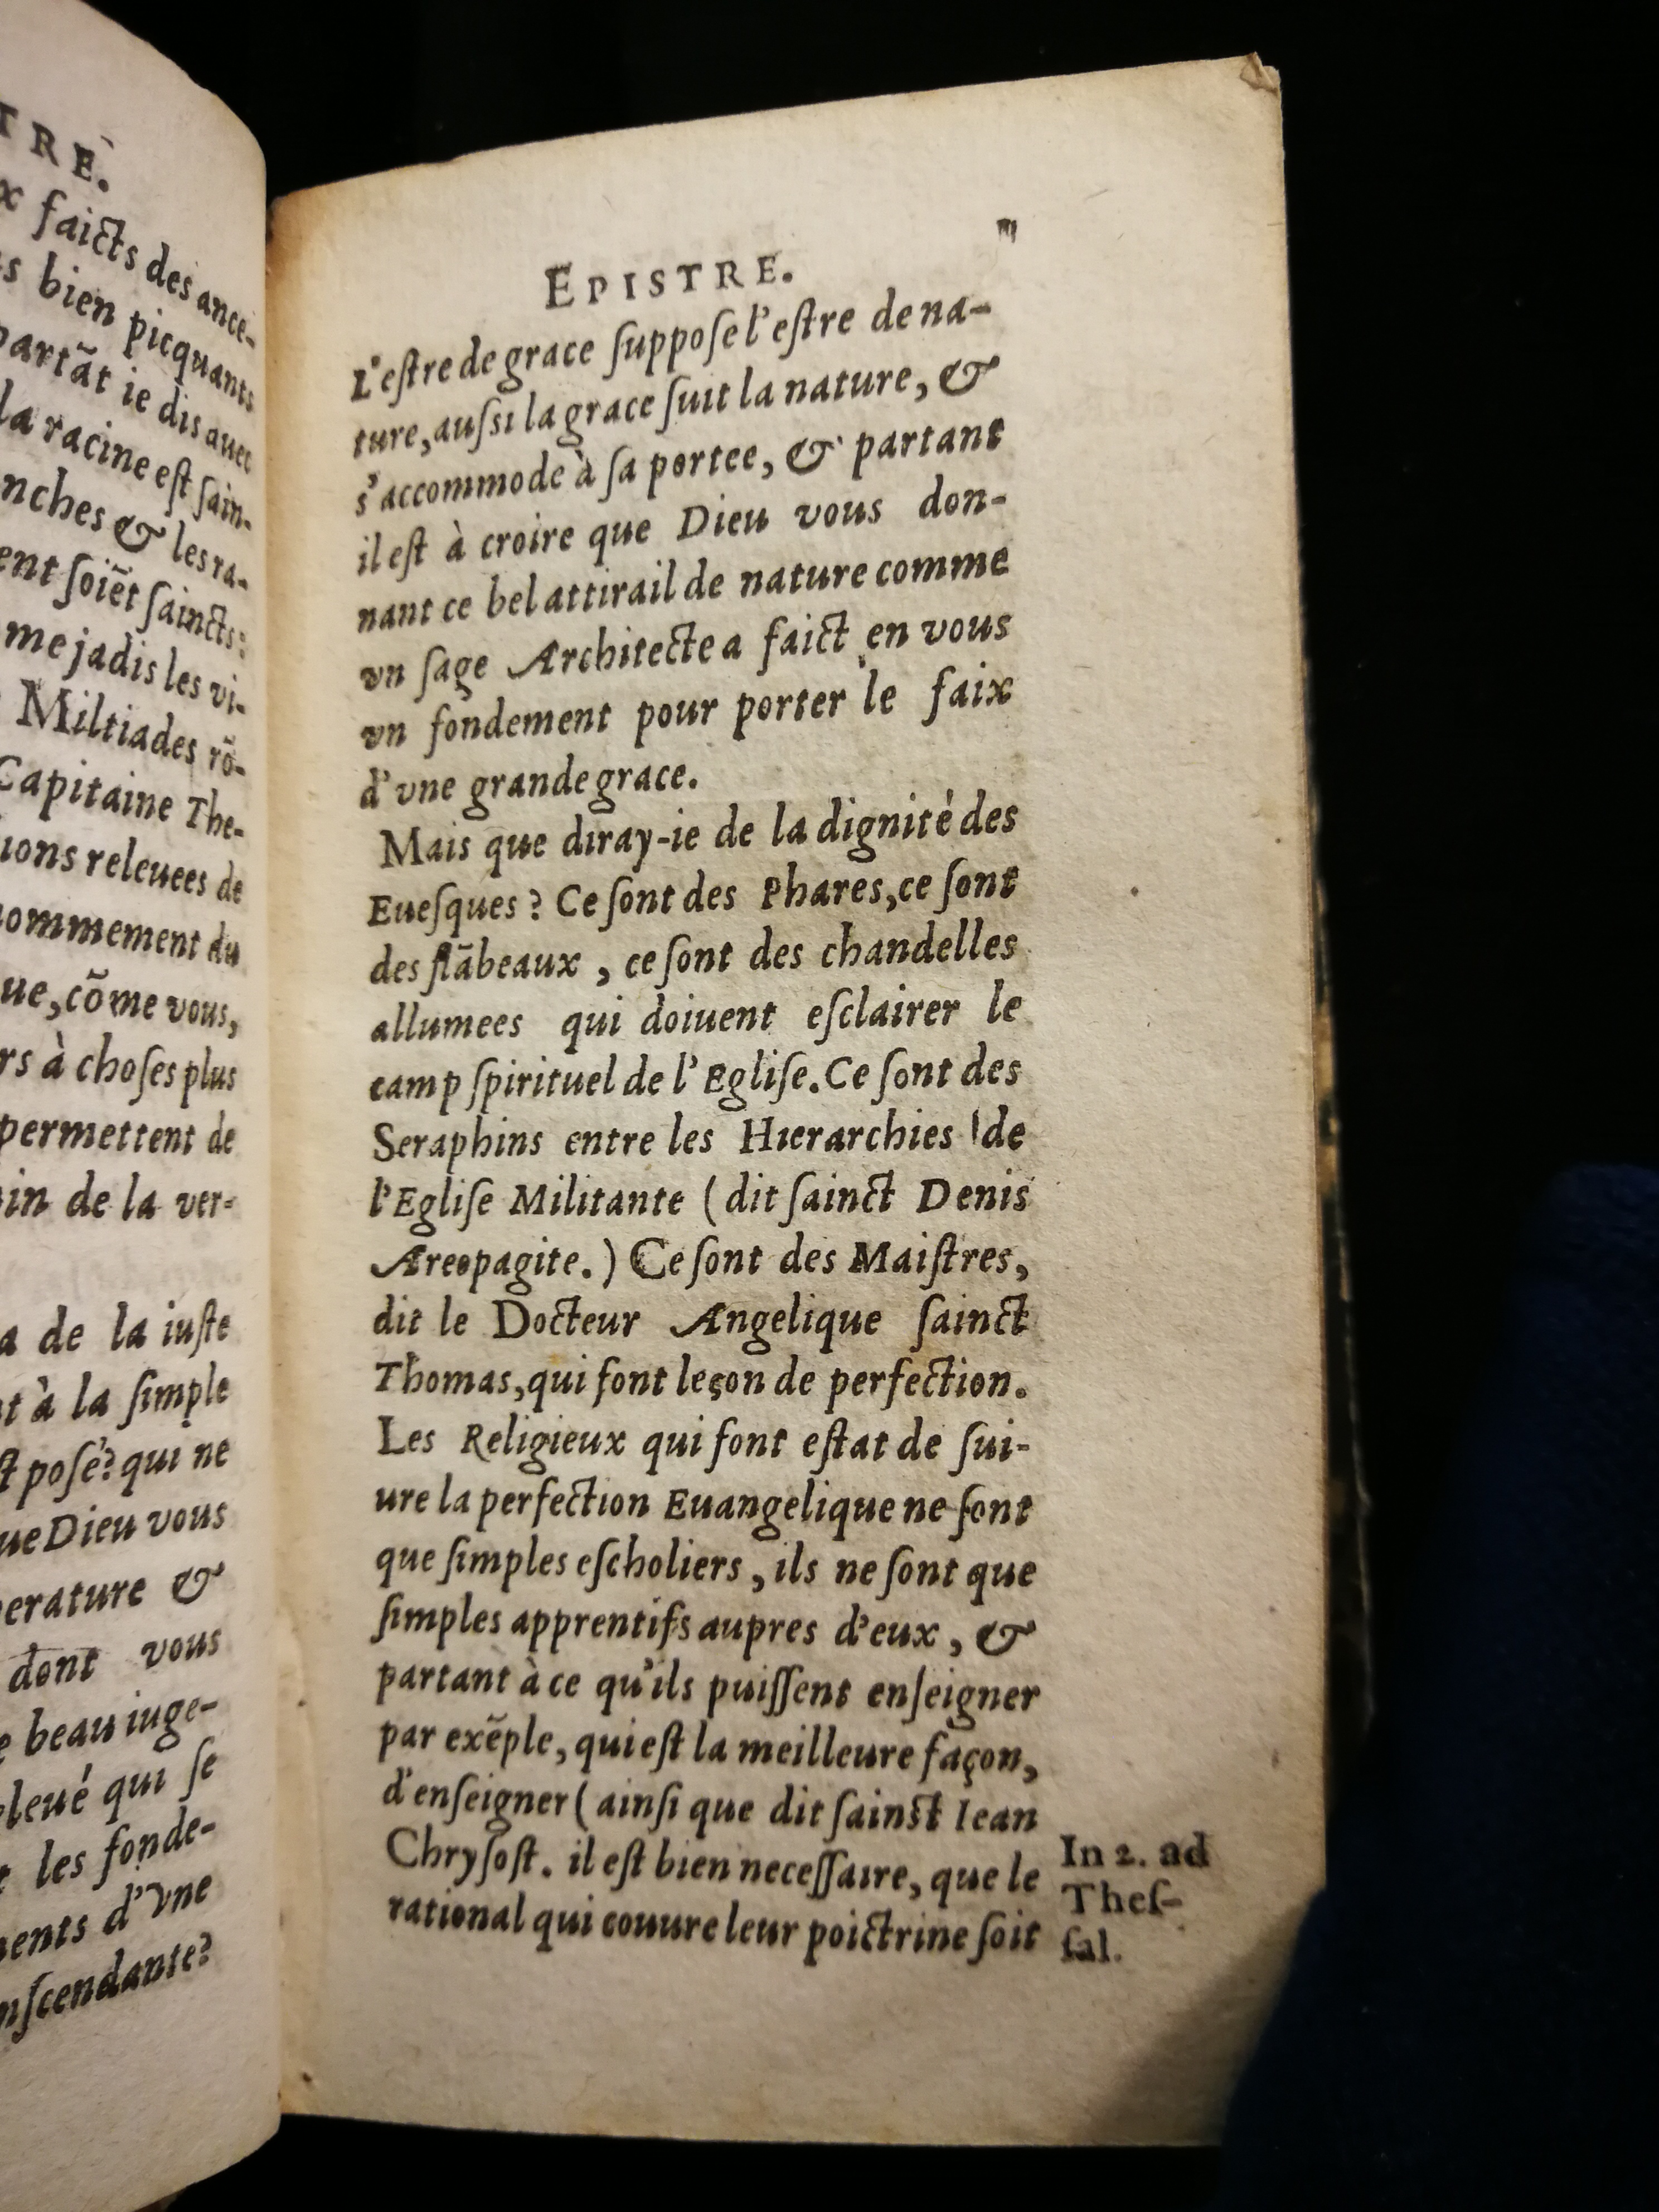 TRE.
x faicts des ance-
s bien picquants
partãt ie dis auec
la racine est sain-
nches & les ra-
ent soiẽt saincts:
me jadis les vi-
Miltiades rõ-
Capitaine The-
ions releuees de
nommement du
ue, cõme vous,
rs à choses plus
permettent de
in de la ver-
a de la iuste
t à la simple
st posé? qui ne
ue Dieu vous
erature &
dont vous
e beau iuge-
leué qui se
t les fonde-
ents d'vne
nscendante?
EPISTRE.
L'estre de grace suppose l'estre de na-
ture, aussi la grace suit la nature, &
s'accommode à sa portee, & partant
il est à croire que Dieu vous don-
nant ce bel attirail de nature comme
vn sage Architecte a faict en vous
vn fondement pour porter le faix
d'vne grande grace.
Mais que diray-ie de la dignité des
Euesques? Ce sont des Phares, ce sont
des flãbeaux, ce sont des chandelles
allumees qui doiuent esclairer le
camp spirituel de l'Eglise. Ce sont des
Seraphins entre les Hierarchies de
l'Eglise Militante (dit sainct Denis
Areopagite.) Ce sont des Maistres,
dit le Docteur Angelique sainct
Thomas, qui font leçon de perfection.
Les Religieux qui font estat de sui-
ure la perfection Euangelique ne sont
que simples escholiers, ils ne sont que
simples apprentifs aupres d'eux, &
partant à ce qu'ils puissent enseigner
par exẽple, qui est la meilleure façon,
d'enseigner (ainsi que dit sainct Iean
Chrysost. il est bien necessaire, que le
rational qui couure leur poictrine soit
In 2. ad
Thes-
sal.